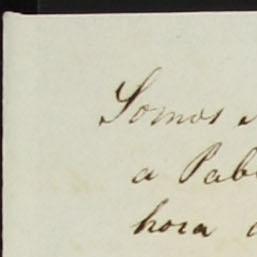 Somos
a Pab
hora